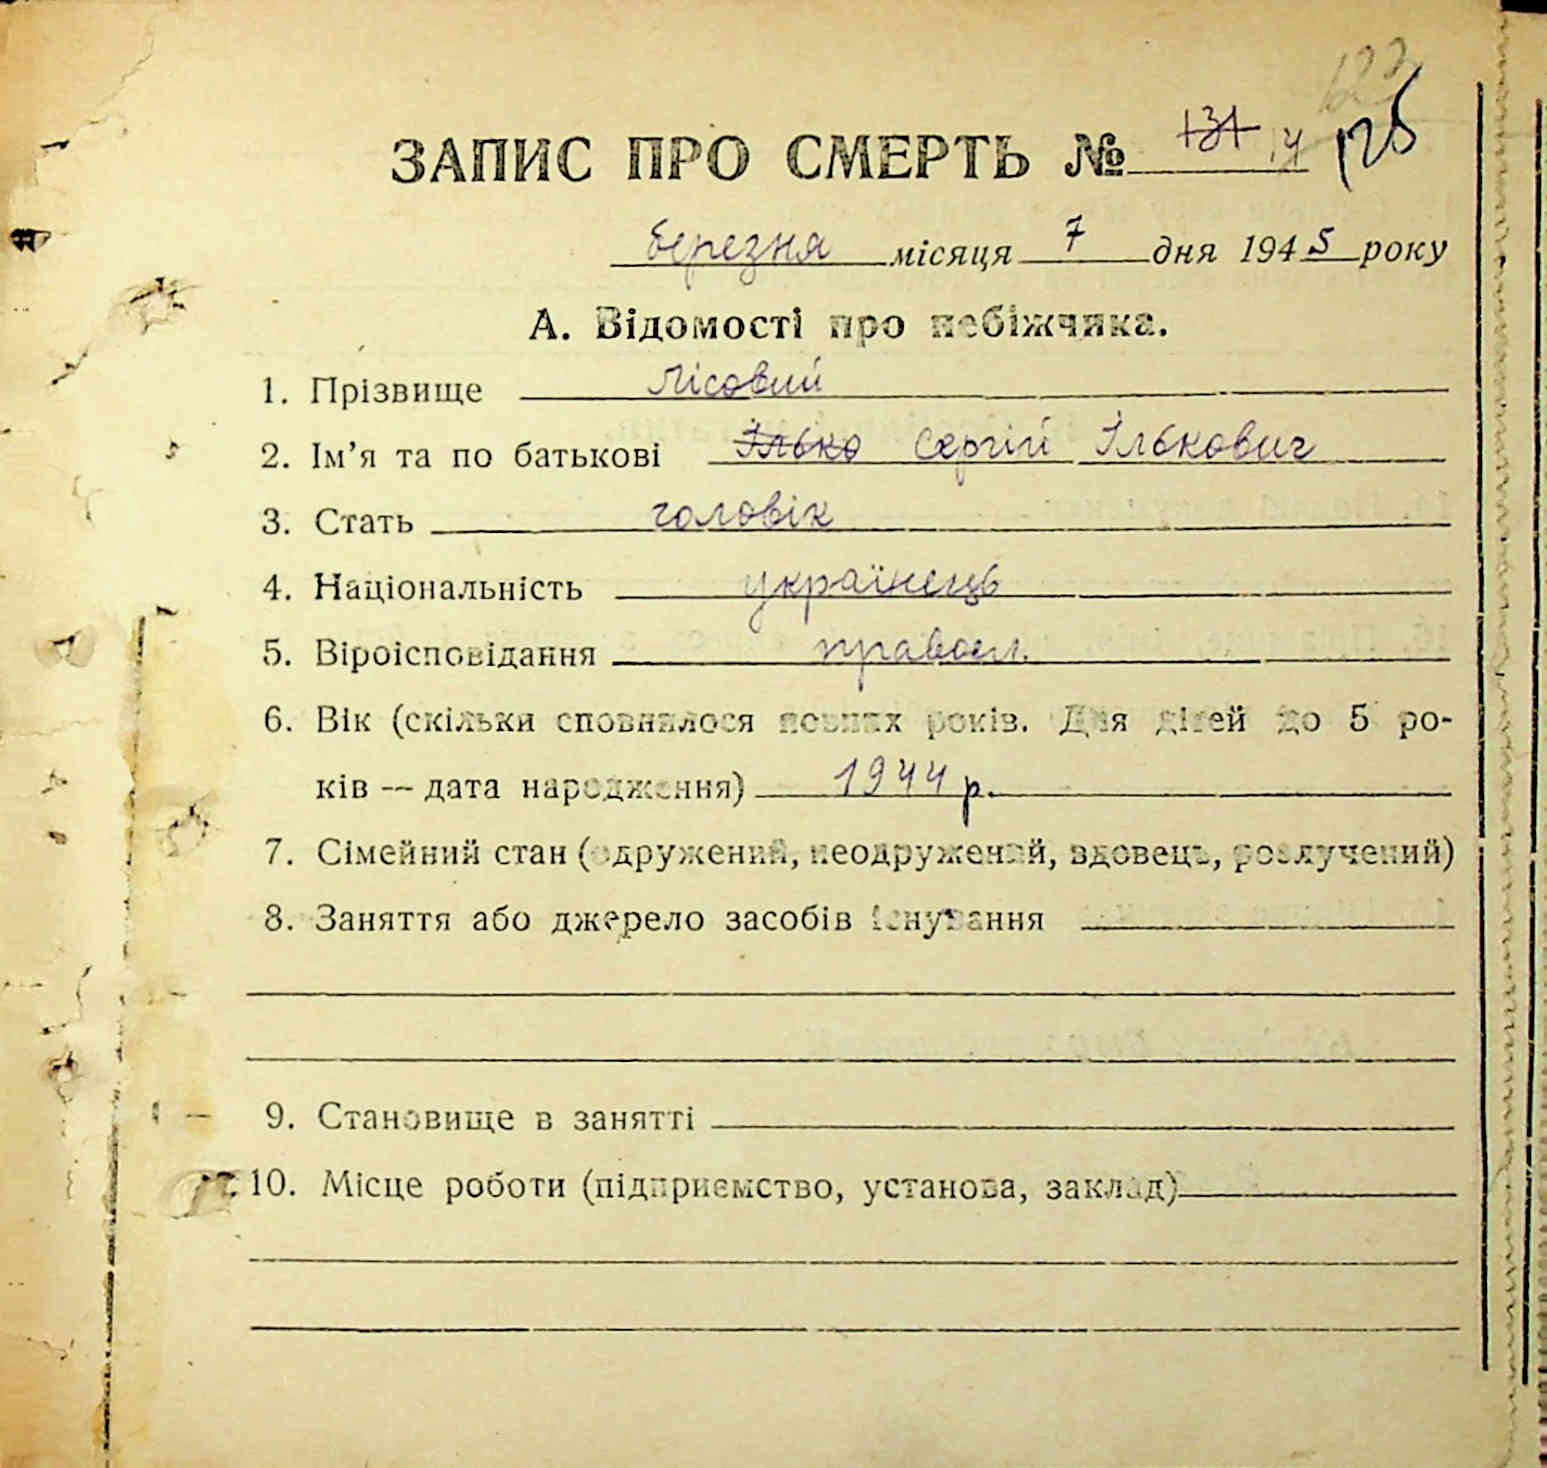 ЗАПИС ПРО СМЕРТЬ № 131 14 125
березня місяця 7 дня 1945 року
А. Відомості про небіжчика.
1. Прізвище Лісовий
2. Ім’я та по батькові Ілько Сергій Ількович
3. Стать чоловік
4. Національність українець
5. Віроісповідання правосл.
6. Вік (скільки сповнилося повних років. Для дітей до 5 ро-
ків — дата народження) 1944 р.
7. Сімейний стан (одружений, неодружений, вдовець, розлучений)
8. Заняття або джерело засобів існування
9. Становище в занятті
10. Місце роботи (підприємство, установа, заклад)